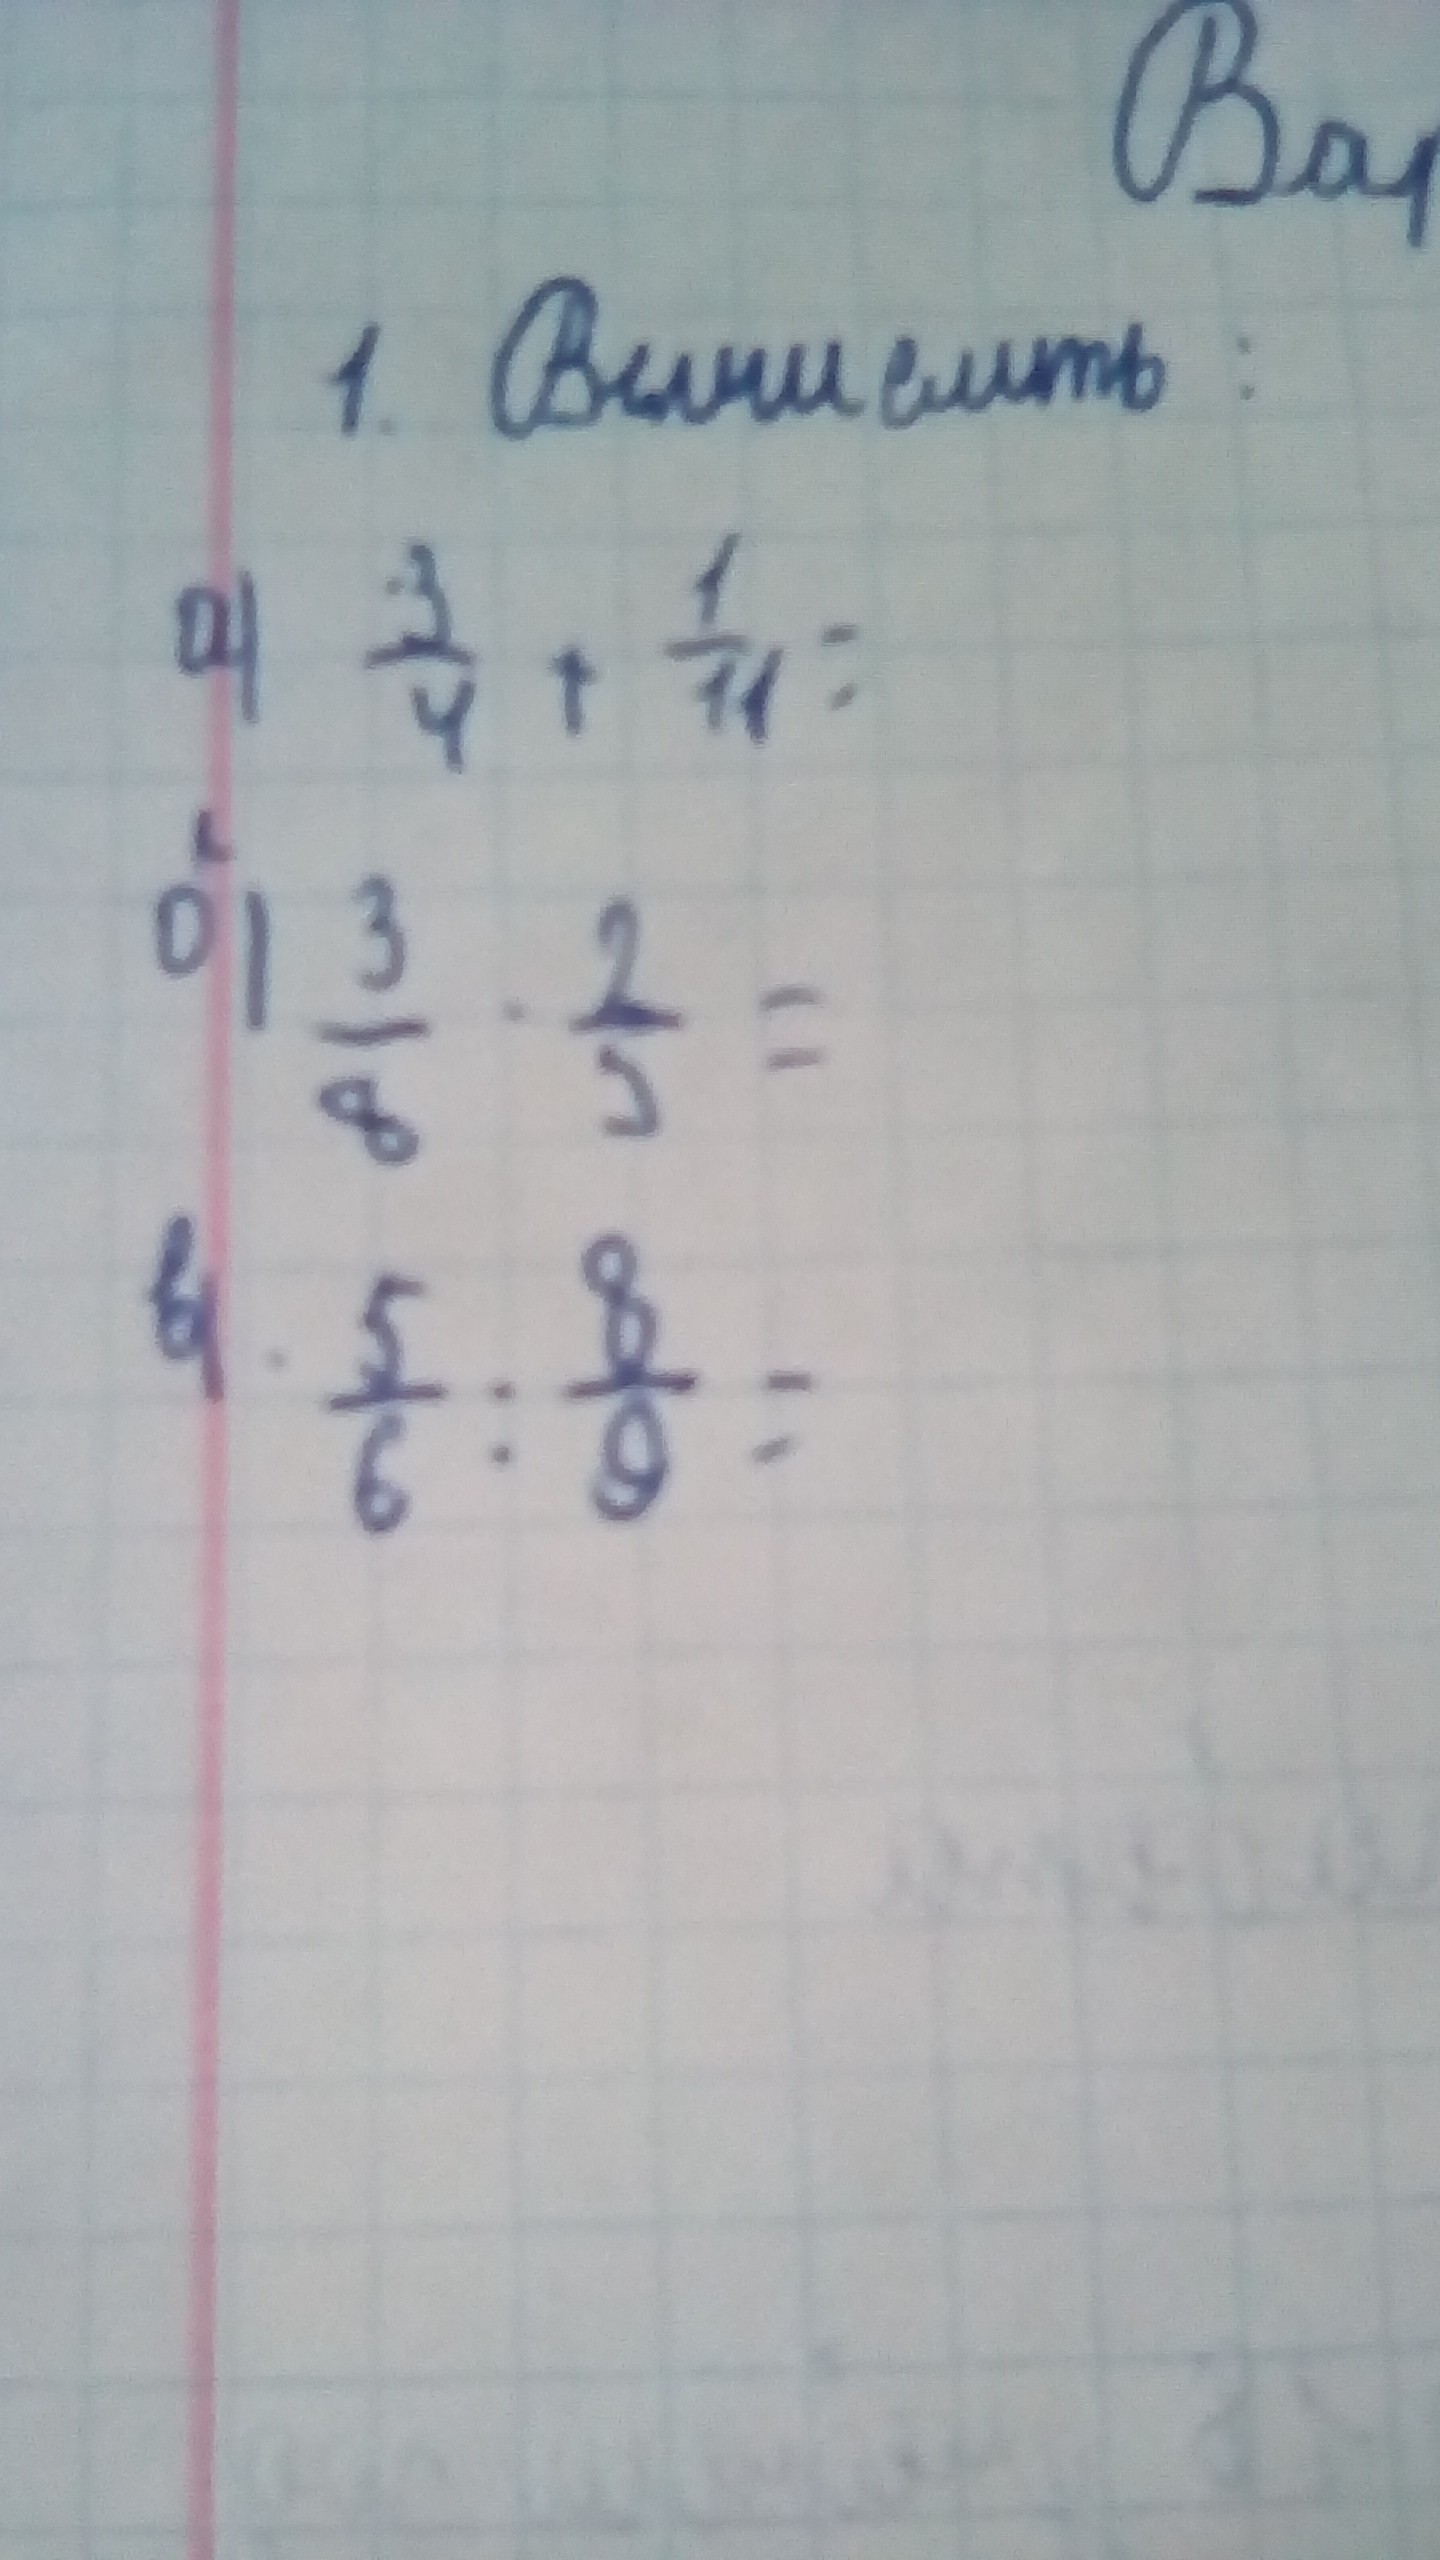 Вар
1. Вычислить:
а) 3/4 + 1/11 =
б) 3/8 · 2/5 =
в) 5/6 : 8/9 =